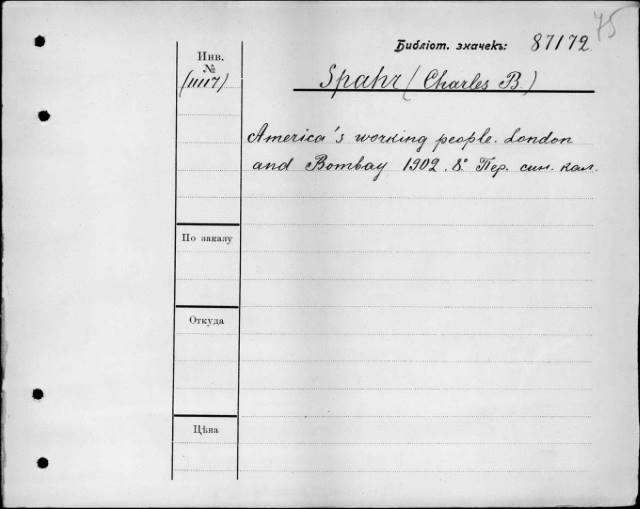 75
Библіот. значекъ: 87172
Инв.
№
(11117)
Spahr (Charles B.)
America's working people. London
and Bombay 1902. 8° Пер. син. кал.
По заказу
Откуда
Цѣна